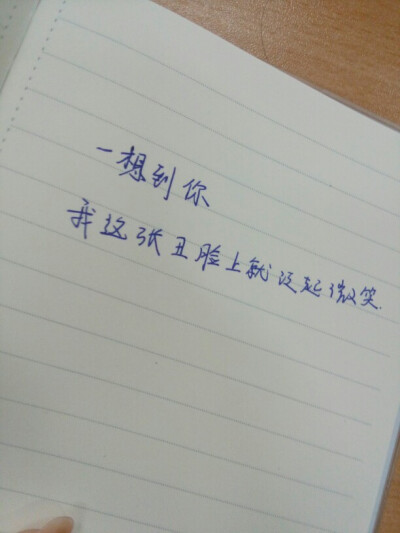 一想到你
我这张丑脸上就泛起微笑.